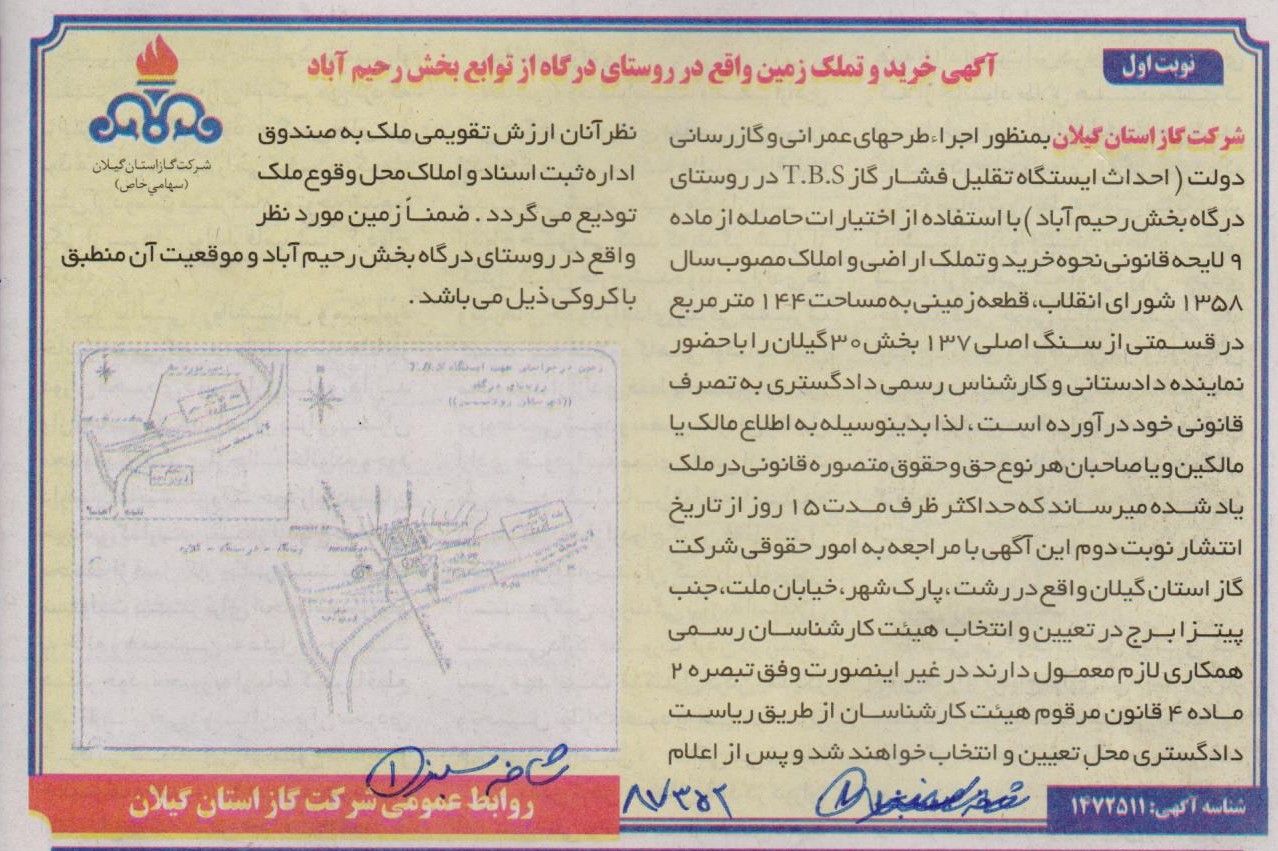 نوبت اول
آگهی خرید و تملک زمین واقع در روستای درگاه از توابع بخش رحیم آباد
شرکت گاز استان گیلان
(سهامی خاص)
شرکت گاز استان گیلان بمنظور اجراء طرحهای عمرانی و گازرسانی
دولت ( احداث ایستگاه تقلیل فشار گاز T.B.S در روستای
درگاه بخش رحیم آباد ) با استفاده از اختیارات حاصله از ماده
۹ لایحه قانونی نحوه خرید و تملک اراضی و املاک مصوب سال
۱۳۵۸ شورای انقلاب، قطعه زمینی به مساحت ۱۴۴ متر مربع
در قسمتی از سنگ اصلی ۱۳۷ بخش ۳۰ گیلان را با حضور
نماینده دادستانی و کارشناس رسمی دادگستری به تصرف
قانونی خود در آورده است ، لذا بدینوسیله به اطلاع مالک یا
مالکین و یا صاحبان هر نوع حق و حقوق متصوره قانونی در ملک
یاد شده میرساند که حداکثر ظرف مدت ۱۵ روز از تاریخ
انتشار نوبت دوم این آگهی با مراجعه به امور حقوقی شرکت
گاز استان گیلان واقع در رشت ، پارک شهر، خیابان ملت، جنب
پیتزا برج در تعیین و انتخاب هیئت کارشناسان رسمی
همکاری لازم معمول دارند در غیر اینصورت وفق تبصره ۲
ماده ۴ قانون مرقوم هیئت کارشناسان از طریق ریاست
دادگستری محل تعیین و انتخاب خواهند شد و پس از اعلام
نظر آنان ارزش تقویمی ملک به صندوق
اداره ثبت اسناد و املاک محل وقوع ملک
تودیع می گردد . ضمناً زمین مورد نظر
واقع در روستای درگاه بخش رحیم آباد و موقعیت آن منطبق
با کروکی ذیل می باشد .
زمین درخواستی جهت ایستگاه T.B.S
روستای درگاه
((شهرستان رودسر))
شناسه آگهی: ۱۴۷۲۵۱۱
۸۷۳۵۲
روابط عمومی شرکت گاز استان گیلان